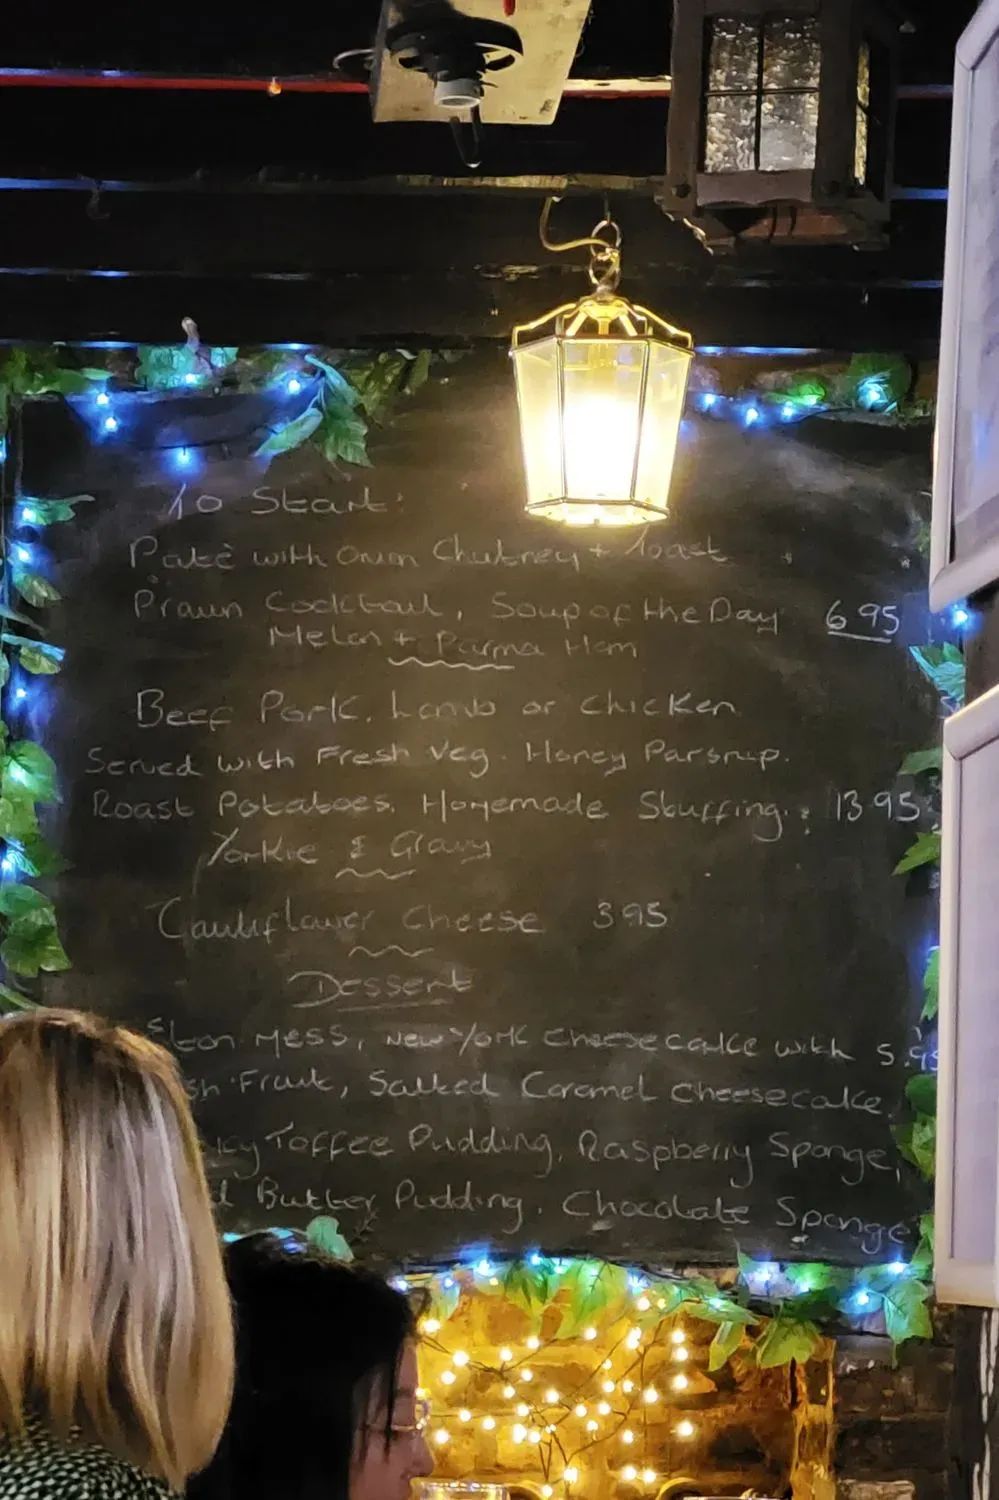 To Start:
Patè with Onion Chutney + Toast
Prawn Cocktail, Soup of the Day 6.95
Melon + Parma Ham
Beef Pork. Lamb or Chicken
Served with Fresh Veg. Honey Parsnip.
Roast Potatoes. Homemade Stuffing. : 13.95
Yorkie & Gravy
Cauliflower Cheese 3.95
Dessert
Eton Mess, New York Cheesecake with 5.95
Fruit, Salted Caramel Cheesecake,
Toffee Pudding, Raspberry Sponge,
Butter Pudding, Chocolate Sponge